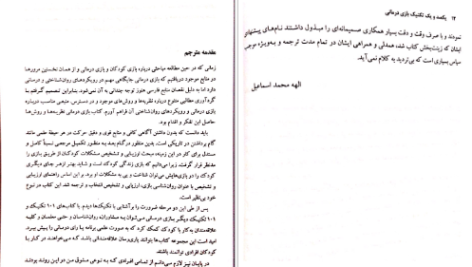 ۱۲ یکصد و یک تکنیک بازی درمانی
نمودند و با صرف وقت و دقت بسیار همکاری صمیمانه‌ای را مبذول داشتند نام‌های پیشنهادی
ایشان که زینت‌بخش کتاب شد، همدلی و همراهی ایشان در تمام مدت ترجمه و به‌ویژه
سپاس بسیاری است که بی‌تردید به کلام نمی‌آید.
الهه محمد اسماعیل
مقدمه مترجم
زمانی که در حین مطالعه مباحثی درباره بازی کودکان و بازی درمانی و از همان نخستین مرورها
در منابع موجود دریافتیم که بازی درمانی جایگاهی مهم در رویکردهای روان‌شناختی و درمانی
دارد اما به دلیل نقصان منابع فارسی هنوز توجه چندانی به آن نمی‌شود. بنابراین تصمیم گرفتم با
گردآوری مطالبی متنوع درباره نظریه‌ها و روش‌های موجود و در دسترس، منبعی مناسب درباره
بازی درمانی و رویکردهای روان‌شناختی آن فراهم آورم. کتاب بازی درمانی نظریه‌ها و روش‌ها
حاصل این تفکر و اقدام بود.
باید دانست که بدون داشتن آگاهی کافی و منابع قوی و دقیق حرکت در هر حیطه علمی مانند
گام برداشتن در تاریکی است. بدین منظور در گام بعد به منظور تکمیل مرجعی نسبتاً کامل و
مستدل برای کار در این زمینه، مبحث ارزیابی و تشخیص مشکلات کودکان از طریق بازی را
مدنظر قرار گرفت، زیرا می‌دانیم که بازی زندگی کودک است و شاید بهتر از هر جای دیگری
کودک را در بازی‌هایش می‌توان شناخت و پی به مشکلات او برد. بر این اساس راهنمای ارزیابی
و تشخیص با عنوان روان‌شناسی بازی، ارزیابی و تشخیص انتخاب و ترجمه شد. این کتاب در نوع
خود بی‌نظیر است.
پس از طی این دو مرحله ضرورت را برآشنایی با تکنیک‌ها دیدم. با کتاب‌های ۱۰۱ تکنیک و
۱۰۱ تکنیک دیگر بازی درمانی می‌توان به مشاوران، روان‌شناسان و حتی معلمان و کلیه
علاقه‌مندان به کار با کودک کمک کرد که به صورت علمی برنامه یا رای درمانی را پیش ببرد.
امید است این مجموعه کتاب‌ها بتواند یاری‌رسان علاقه‌مندانی باشد که می‌خواهند در کنار با
کودکان افرادی توانمند باشند.
در پایان نیز لازم می‌دانم از تمامی افرادی که به نوعی مشوق من در این روند بودند